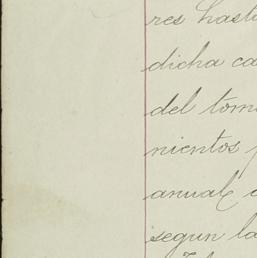 res hast
dicha ca
del tom
nientos
anual
segun la